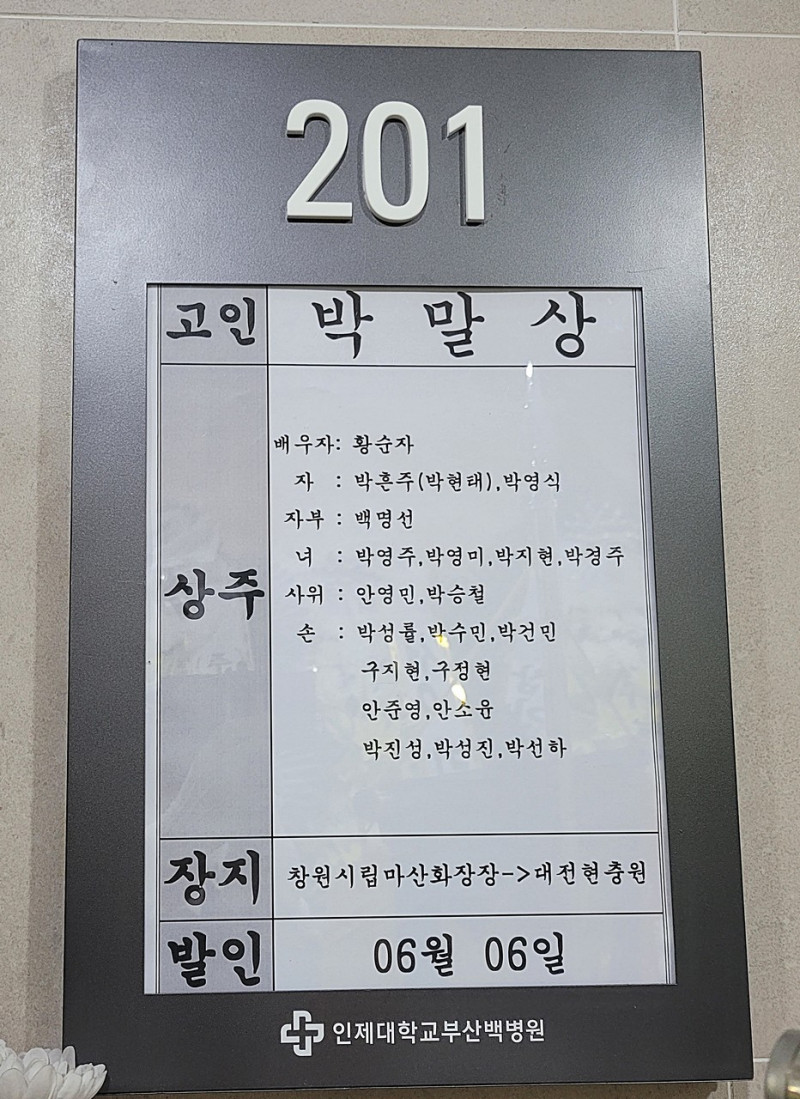 201
고인 박 말 상
배우자: 황순자
자 : 박흔주(박현태),박영식
자부 : 백명선
녀 : 박영주,박영미,박지현,박경주
상주
사위 : 안영민,박승철
손 : 박성률,박수민,박건민
구지현,구정현
안준영,안소윤
박진성,박성진,박선하
장지 창원시립마산화장장->대전현충원
발인 06월 06일
인제대학교부산백병원